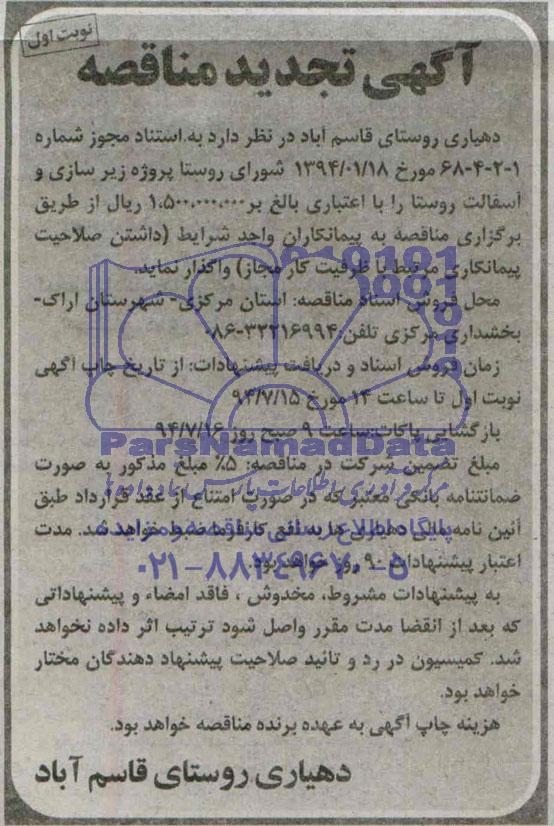 نوبت اول
آگهی تجدید مناقصه
دهیاری روستای قاسم آباد در نظر دارد به استناد مجوز شماره
۶۸-۴-۲-۱ مورخ ۱۳۹۴/۰۱/۱۸ شورای روستا پروژه زیر سازی و
آسفالت روستا را با اعتباری بالغ بر ۱،۵۰۰،۰۰۰،۰۰۰ ریال از طریق
برگزاری مناقصه به پیمانکاران واجد شرایط (داشتن صلاحیت
پیمانکاری مرتبط با ظرفیت کار مجاز) واگذار نماید.
محل فروش اسناد مناقصه: استان مرکزی- شهرستان اراک-
بخشداری مرکزی تلفن: ۳۲۲۱۶۹۹۴-۰۸۶
زمان فروش اسناد و دریافت پیشنهادات: از تاریخ چاپ آگهی
نوبت اول تا ساعت ۱۴ مورخ ۹۴/۷/۱۵
بازگشایی پاکات: ساعت ۹ صبح روز ۹۴/۷/۱۶
ParsNamadData
مبلغ تضمین شرکت در مناقصه: ۵٪ مبلغ مذکور به صورت
ضمانتنامه بانکی معتبر که در صورت امتناع از عقد قرارداد طبق
آئین نامه مالی دهیاری ها به نفع کارفرما ضبط خواهد شد. مدت
پایگاه اطلاع رسانی مناقصه و مزایده
اعتبار پیشنهادات ۹۰ روز خواهد بود.
۰۲۱-۸۸۳۴۹۶۷۰-۵
به پیشنهادات مشروط، مخدوش ، فاقد امضاء و پیشنهاداتی
که بعد از انقضا مدت مقرر واصل شود ترتیب اثر داده نخواهد
شد. کمیسیون در رد و تائید صلاحیت پیشنهاد دهندگان مختار
خواهد بود.
هزینه چاپ آگهی به عهده برنده مناقصه خواهد بود.
دهیاری روستای قاسم آباد